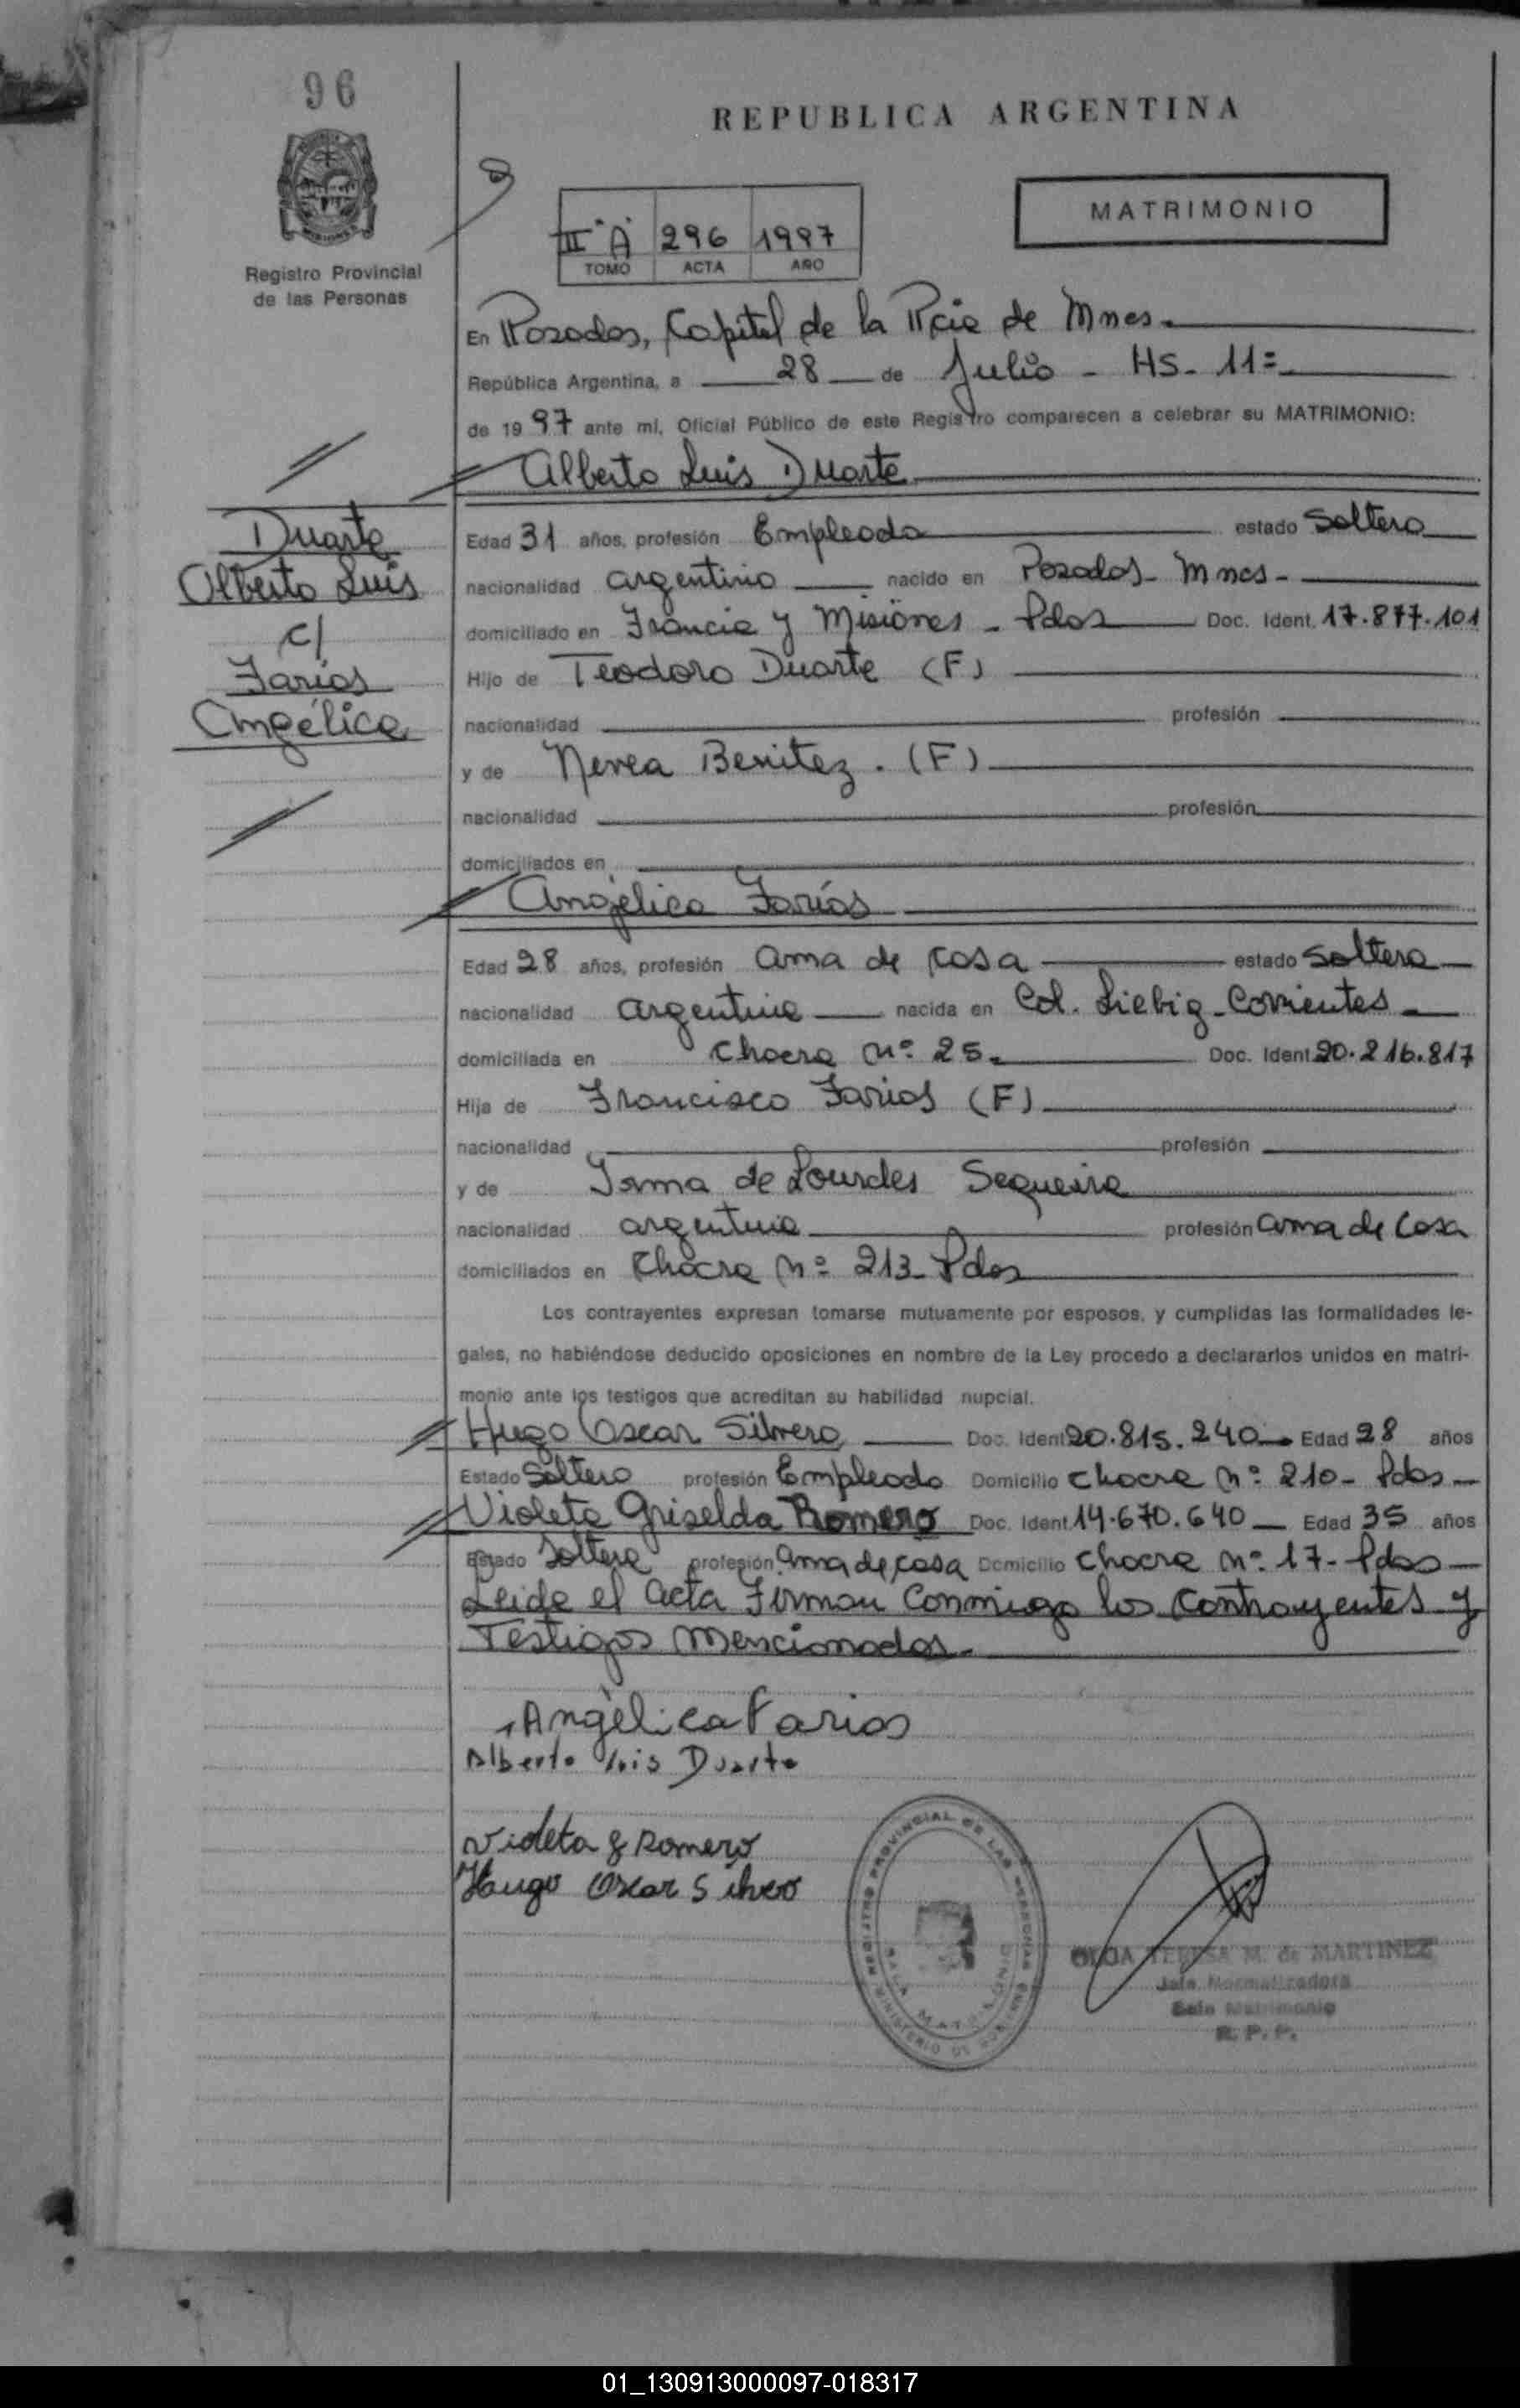 96
REPUBLICA ARGENTINA
MATRIMONIO
II "A" 296 1997
TOMO ACTA AÑO
Registro Provincial
de las Personas
En Posadas, Capital de la Pcia de Mnes.
República Argentina, a 28 de Julio - HS. 11=
de 1997 ante mí, Oficial Público de este Registro comparecen a celebrar su MATRIMONIO:
Alberto Luis Duarte
Duarte
Alberto Luis
c/
Farías
Angélica
Edad 31 años, profesión Empleado estado Soltero
nacionalidad argentino nacido en Posadas - Mnes -
domiciliado en Francia y Misiones - Pdas Doc. Ident. 17.877.101
Hijo de Teodoro Duarte (F)
nacionalidad profesión
y de Nerea Benitez. (F)
nacionalidad profesión
domiciliados en
Angélica Farías
Edad 28 años, profesión ama de casa estado Soltera
nacionalidad argentina nacida en Col. Liebig - Corrientes
domiciliada en Chacra Nº 25. Doc. Ident. 20.216.817
Hija de Francisco Farias (F)
nacionalidad profesión
y de Irma de Lourdes Sequeira
nacionalidad argentina profesión ama de casa
domiciliados en Chacra Nº 213 - Pdas
Los contrayentes expresan tomarse mutuamente por esposos, y cumplidas las formalidades le-
gales, no habiéndose deducido oposiciones en nombre de la Ley procedo a declararlos unidos en matri-
monio ante los testigos que acreditan su habilidad nupcial.
Hugo Oscar Silvero Doc. Ident. 20.815.240 Edad 28 años
Estado Soltero profesión Empleado Domicilio Chacra Nº 210 - Pdas
Violeta Griselda Romero Doc. Ident. 14.670.640 Edad 35 años
Estado Soltera profesión ama de casa Domicilio Chacra Nº 17 - Pdas
Leida el acta Firman Conmigo los Contrayentes y
Testigos Mencionados.
Angèlica Farias
Alberto Luis Duarte
Violeta G Romero
Hugo Oscar Silvero
REGISTRO PROVINCIAL DE LAS PERSONAS
MINISTERIO DE GOBIERNO
SALA MATRIMONIO
OLGA TERESA M. de MARTINEZ
Jefa Normalizadora
Sala Matrimonio
R. P. P.
01_130913000097-018317